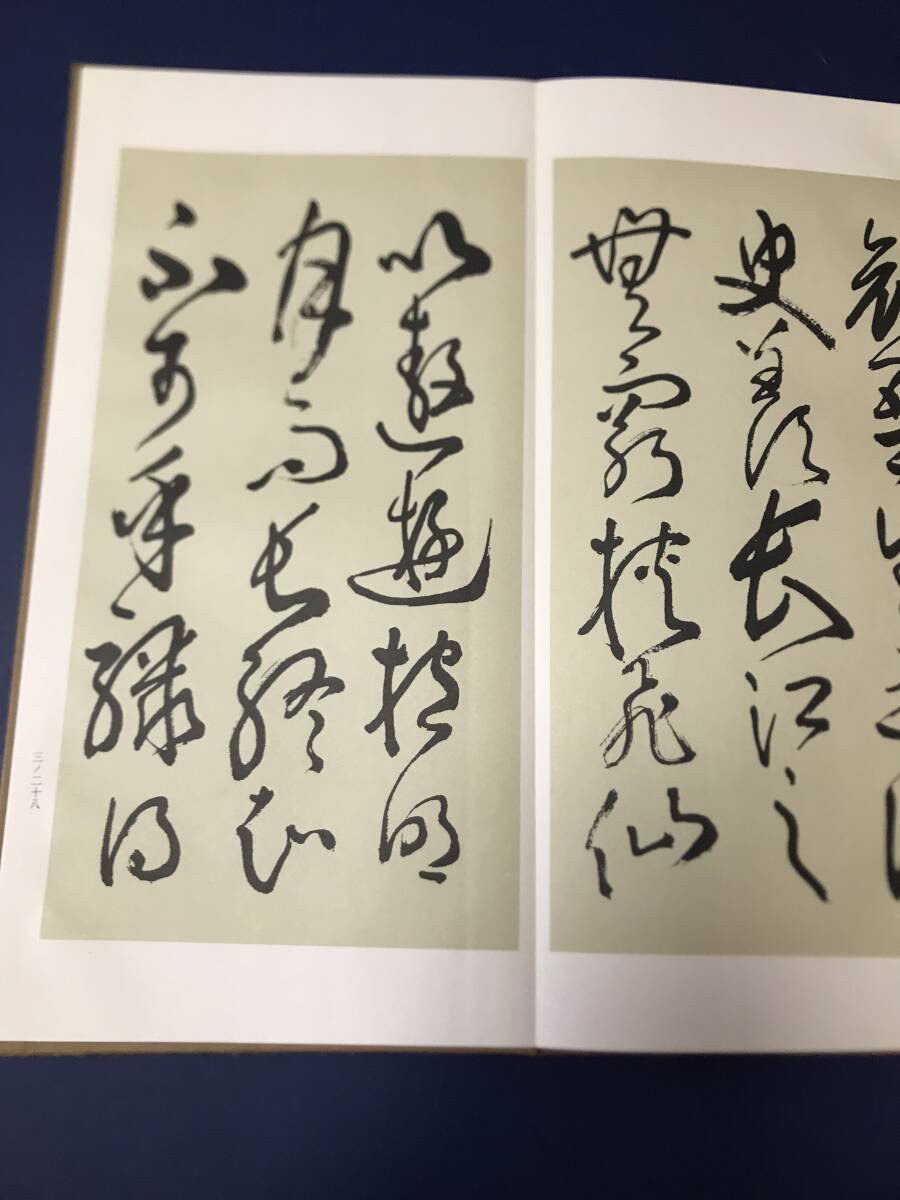 哀吾生之須
臾羨長江之
無窮挾飛仙
以遨遊抱明
月而長終知
不可乎驟得
三ノ二十八